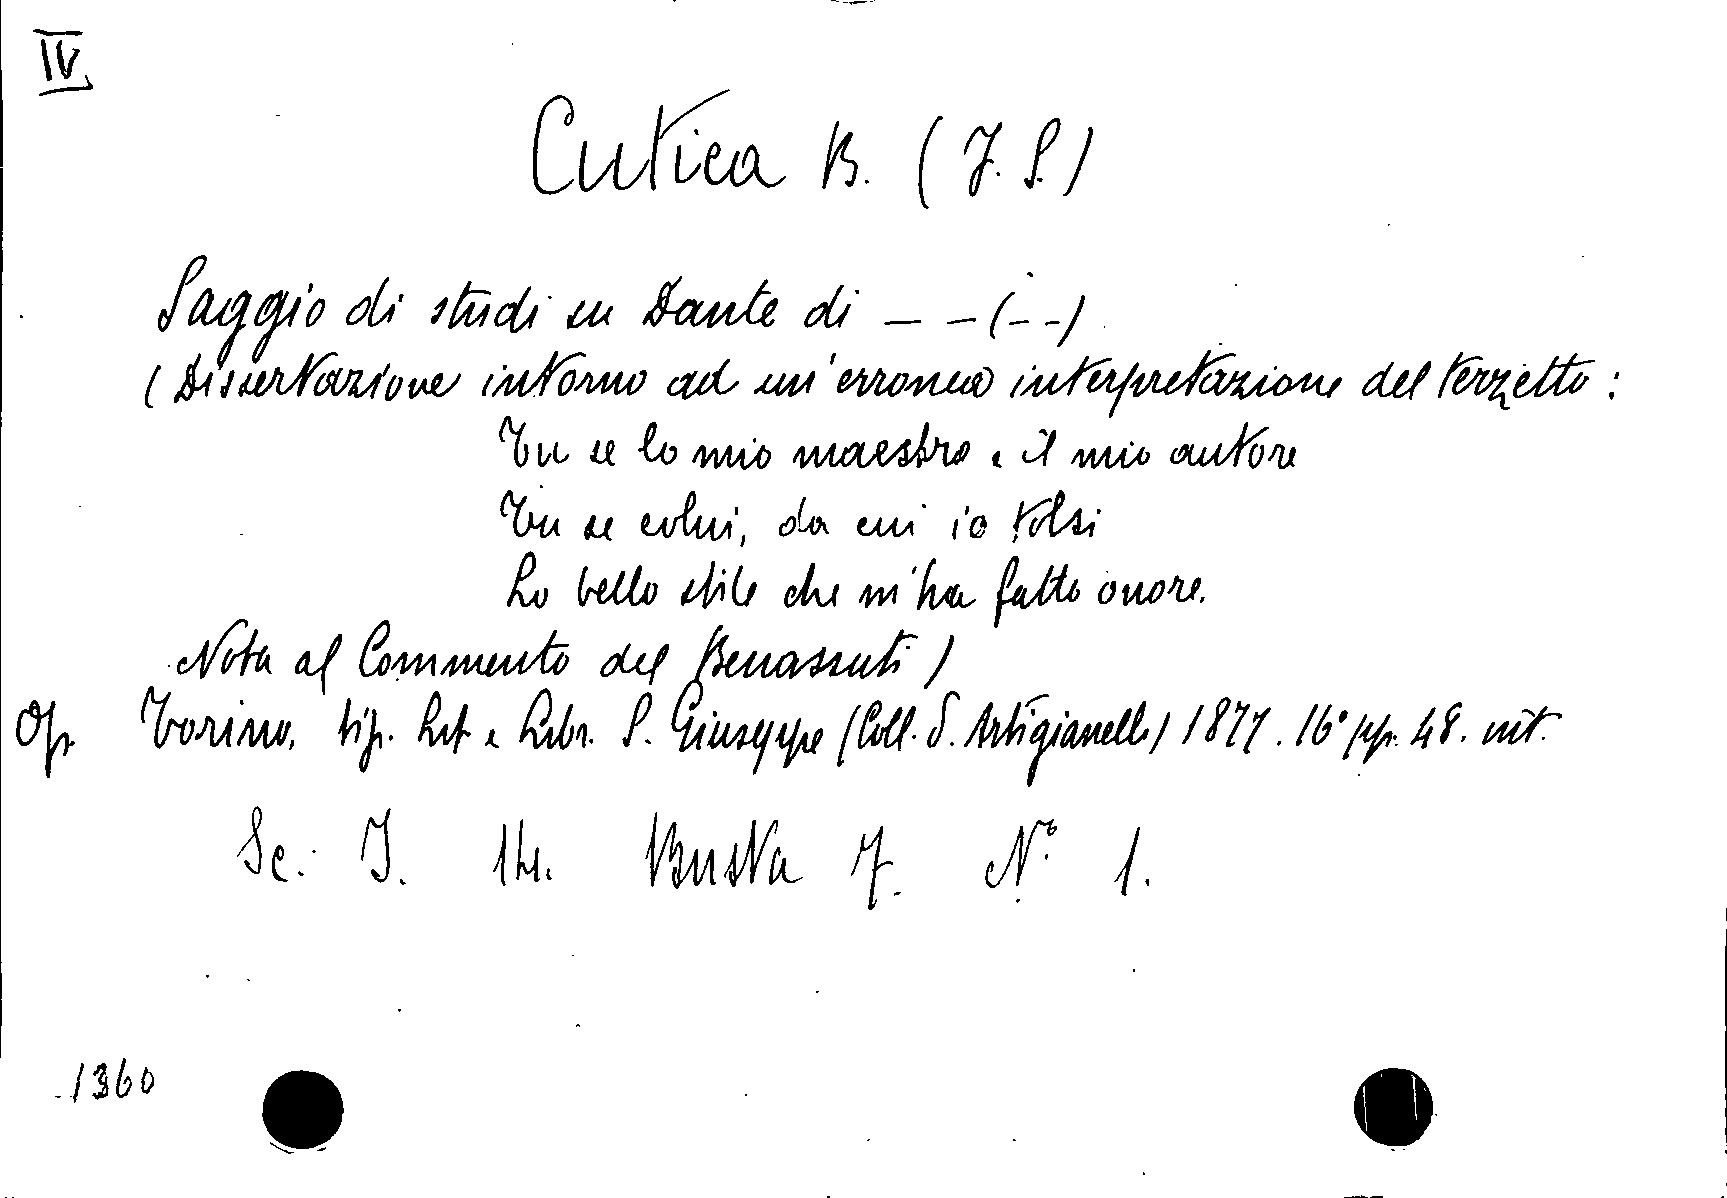 IV
Cutica B. (J. S.)
Saggio di studi su Dante di _ _ (_ _)
(Dissertazione intorno ad un'erronea interpretazione del terzetto:
Tu se lo mio maestro e il mio autore
Tu se colui, da cui io tolsi
Lo bello stile che m'ha fatto onore.
Nota al Commento del Benassuti)
Op. Torino, tip. Lit. e Libr. S. Giuseppe (Coll. d. Artigianelli) 1877. 16° pp. 48. int.
Sc. I. Busta 7. N.° 1.
1360